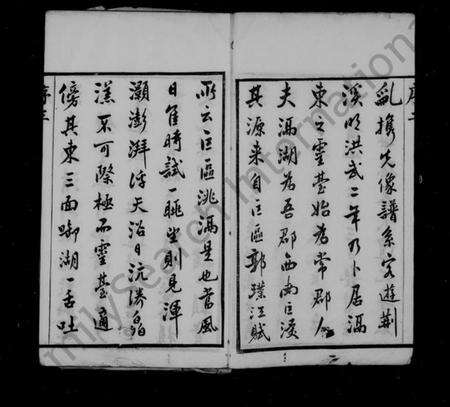 亂攜先像譜系客遊荆
溪明洪武二年乃卜居滆
東之靈臺始為常郡人
夫滆湖為吾郡西南巨浸
其源來自巨區郭璞江賦
所云巨區洮滆是也當風
日隹時試一眺望則見渾
灝澎湃浮天浴日沆漭
漾不可際極而靈臺適
傍其東三面啣湖一舌吐
序二
序三
MySearch International